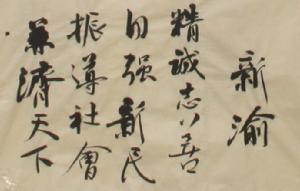 新渝
精誠志善
自强新民
振導社會
兼濟天下